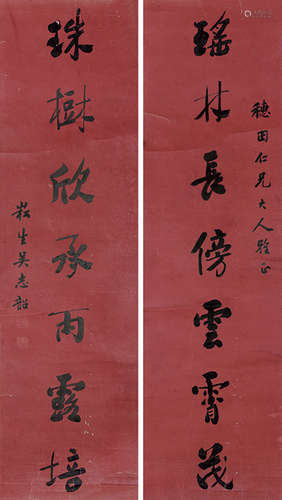 穗田仁兄大人雅正
瑤林長傍雲霄茂
珠樹欣承雨露培
崧生吳志韶